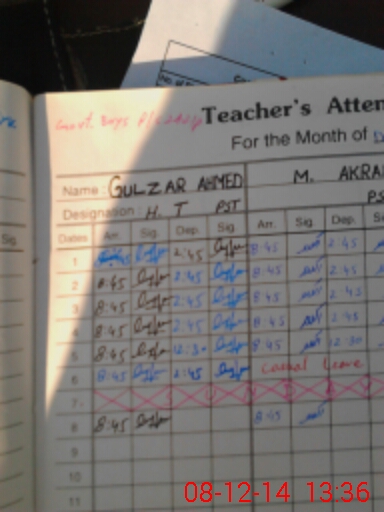 Govt. Boys P/S
Teacher's Atten
For the Month of
Name : GULZAR AHMED M. AKRA
Designation : H. T PST PS
Dates Arr. Sig. Dep. Sig. Arr. Sig. Dep. Sig
1 8:45 2:45 8:45 2:45
2 8:45 2:45 8:45 2:45
3 8:45 2:45 8:45 2:45
4 8:45 2:45 8:45 2:45
5 8:45 12:30 8:45 12:30
6 8:45 2:45 Casual Leave
7
8 8:45 8:45
9
10
11
08-12-14 13:36